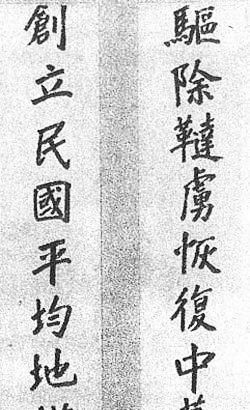 驅除韃虜恢復中
創立民國平均地